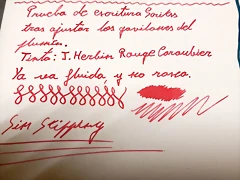 Prueba de escritura Soritas
tras ajustar los gavilanes del
plumín.
Tinta: J. Herbin Rouge Caroubier
Ya va fluida, y no rasca.